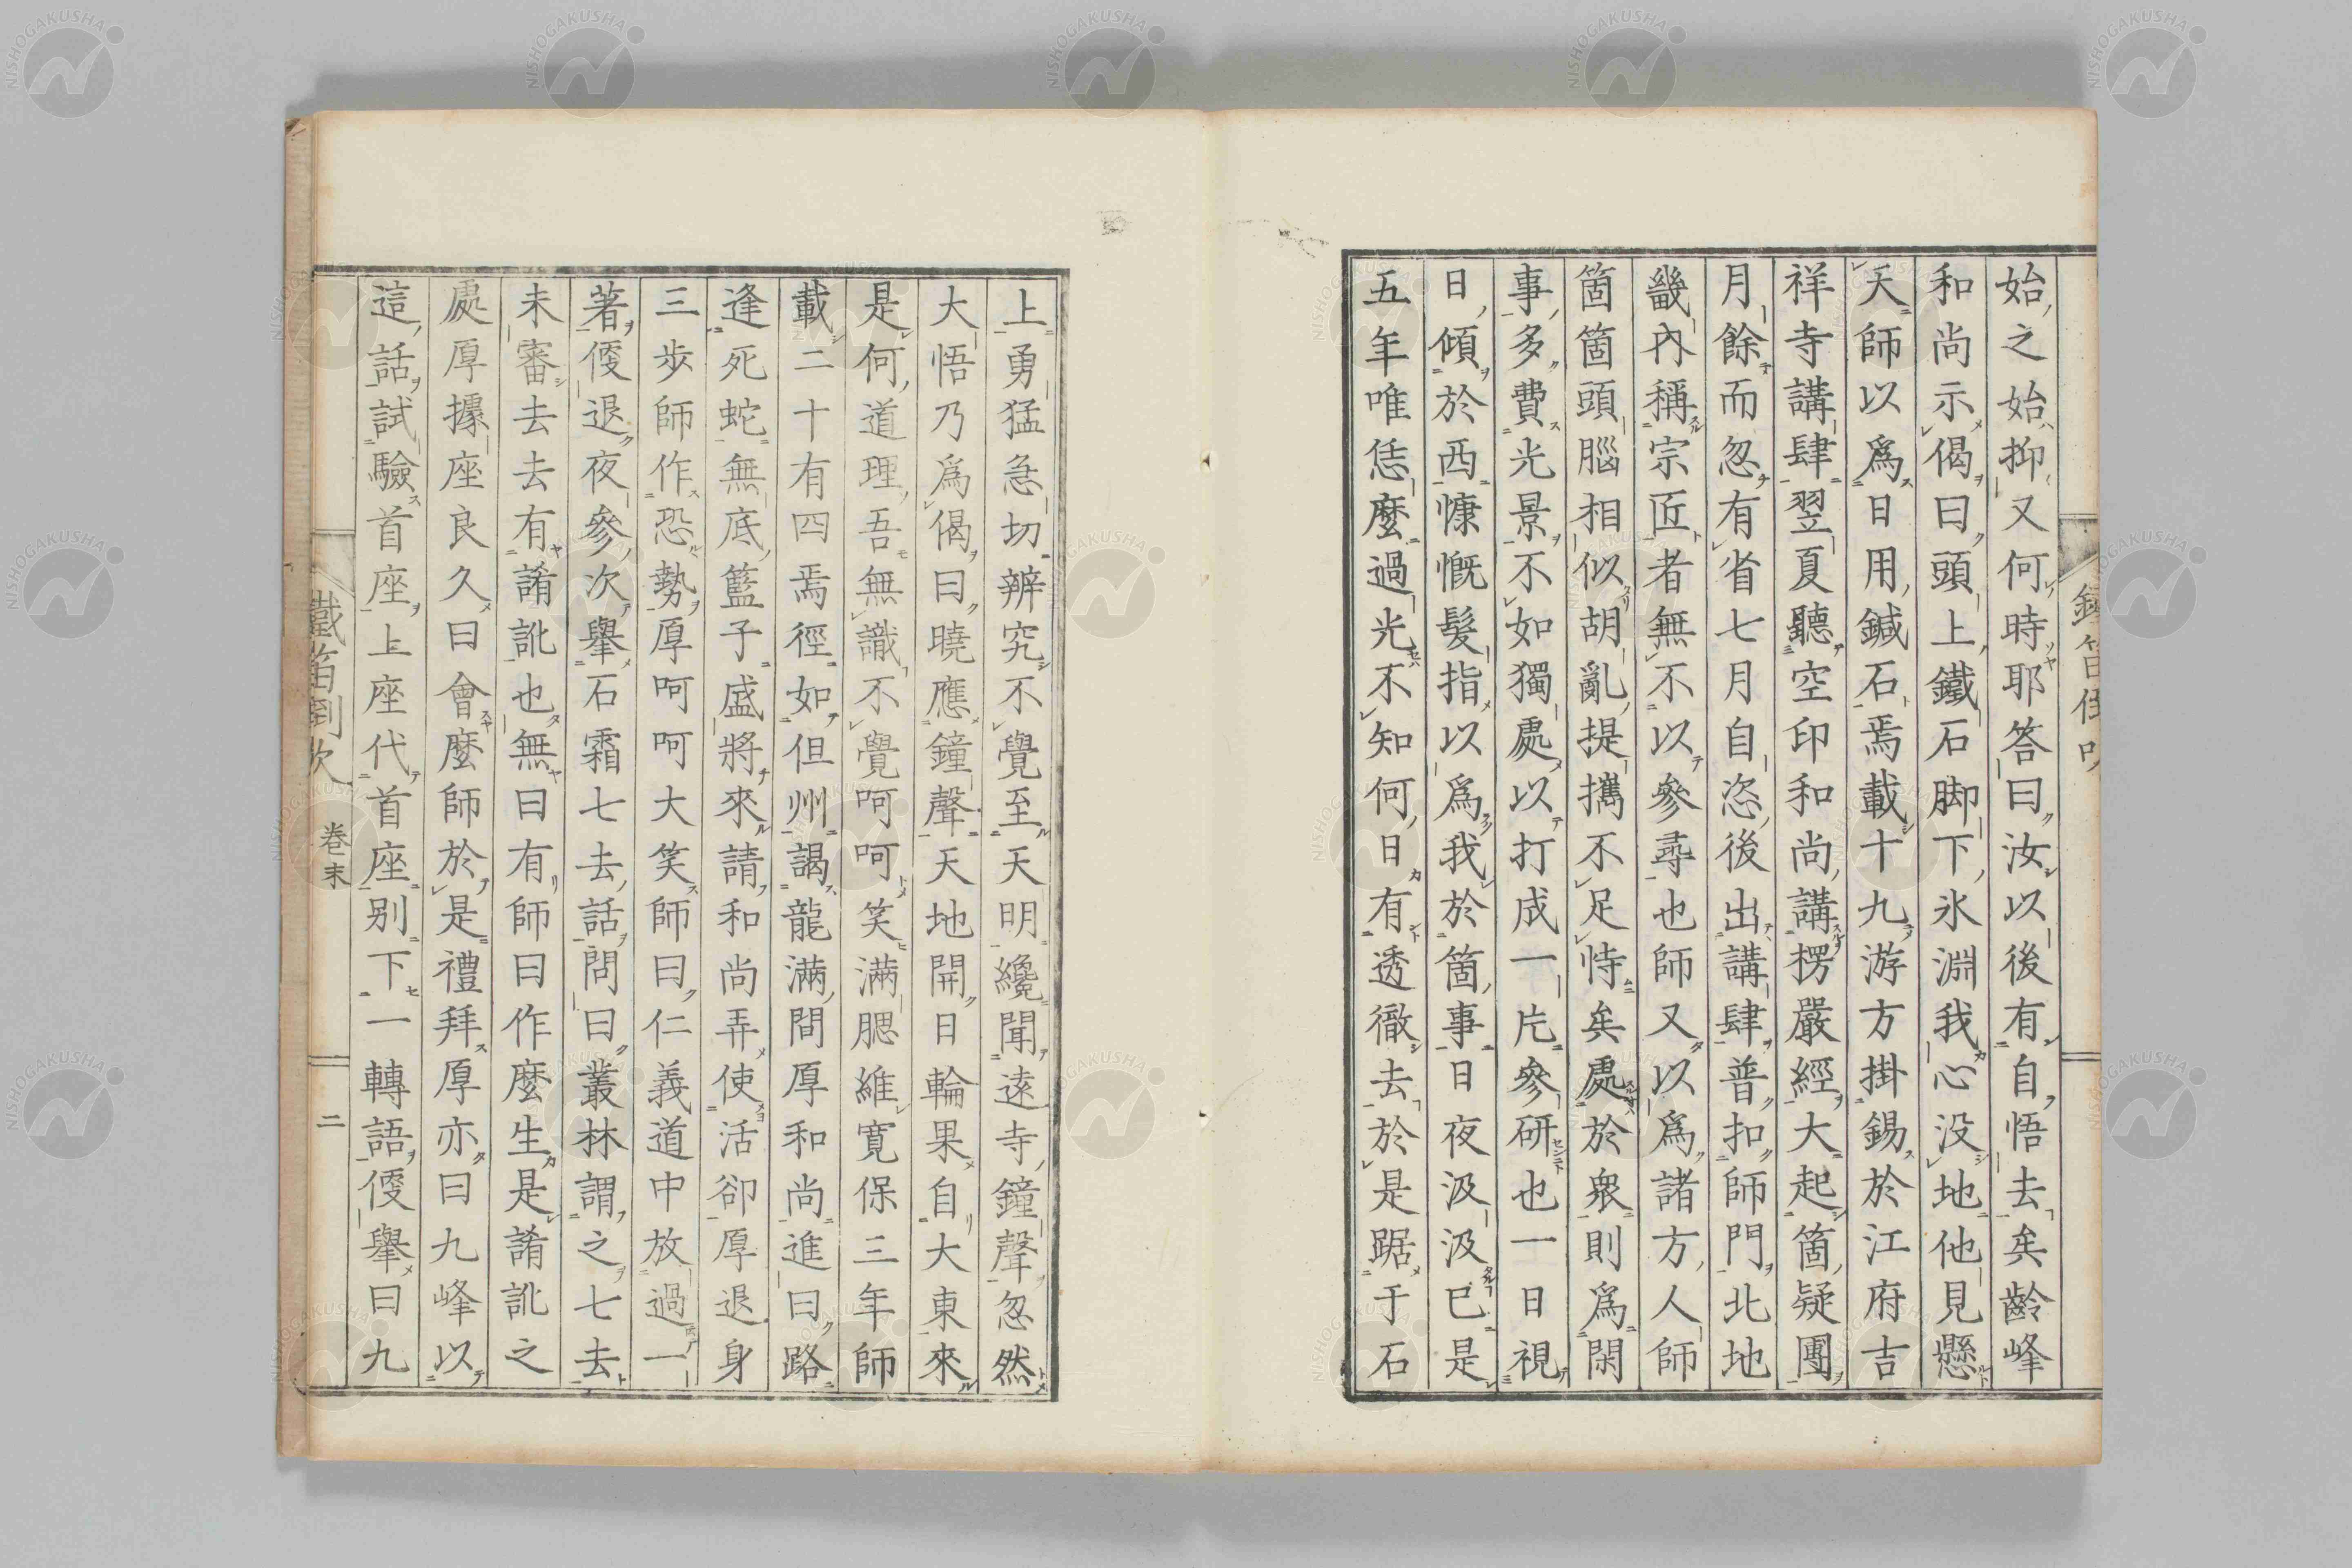 始之始抑又何時耶答曰汝以後有自悟去矣齡峰
和尚示偈曰頭上鐵石脚下氷淵我心没地他見懸
天師以爲日用鍼石焉載十九游方掛錫於江府吉
祥寺講肆翌夏聽空印和尚講楞嚴經大起箇疑團
月餘而忽有省七月自恣後出講肆普扣師門北地
畿內稱宗匠者無不以參尋也師又以爲諸方人師
箇箇頭腦相似胡亂提攜不足恃矣處於衆則爲閑
事多費光景不如獨處以打成一片參研也一日視
日傾於西慷慨髮指以爲我於箇事日夜汲汲已是
五年唯恁麼過光不知何日有透徹去於是踞于石
上勇猛急切辨究不覺至天明纔聞遠寺鐘聲忽然
大悟乃爲偈曰曉應鐘聲天地開日輪果自大東來
是何道理吾無識不覺呵呵笑滿腮維寬保三年師
載二十有四焉徑如但州謁龍滿間厚和尚進曰路
逢死蛇無底籃子盛將來請和尚弄使活卻厚退身
三步師作恐勢厚呵呵大笑師曰仁義道中放過一
著便退夜參次擧石霜七去話問曰叢林謂之七去
未審去去有誵訛也無曰有師曰作麼生是誵訛之
處厚據座良久曰會麼師於是禮拜厚亦曰九峰以
這話試驗首座上座代首座別下一轉語便擧曰九
鐵笛倒吹
卷末
二
NISHOGAKUSHA